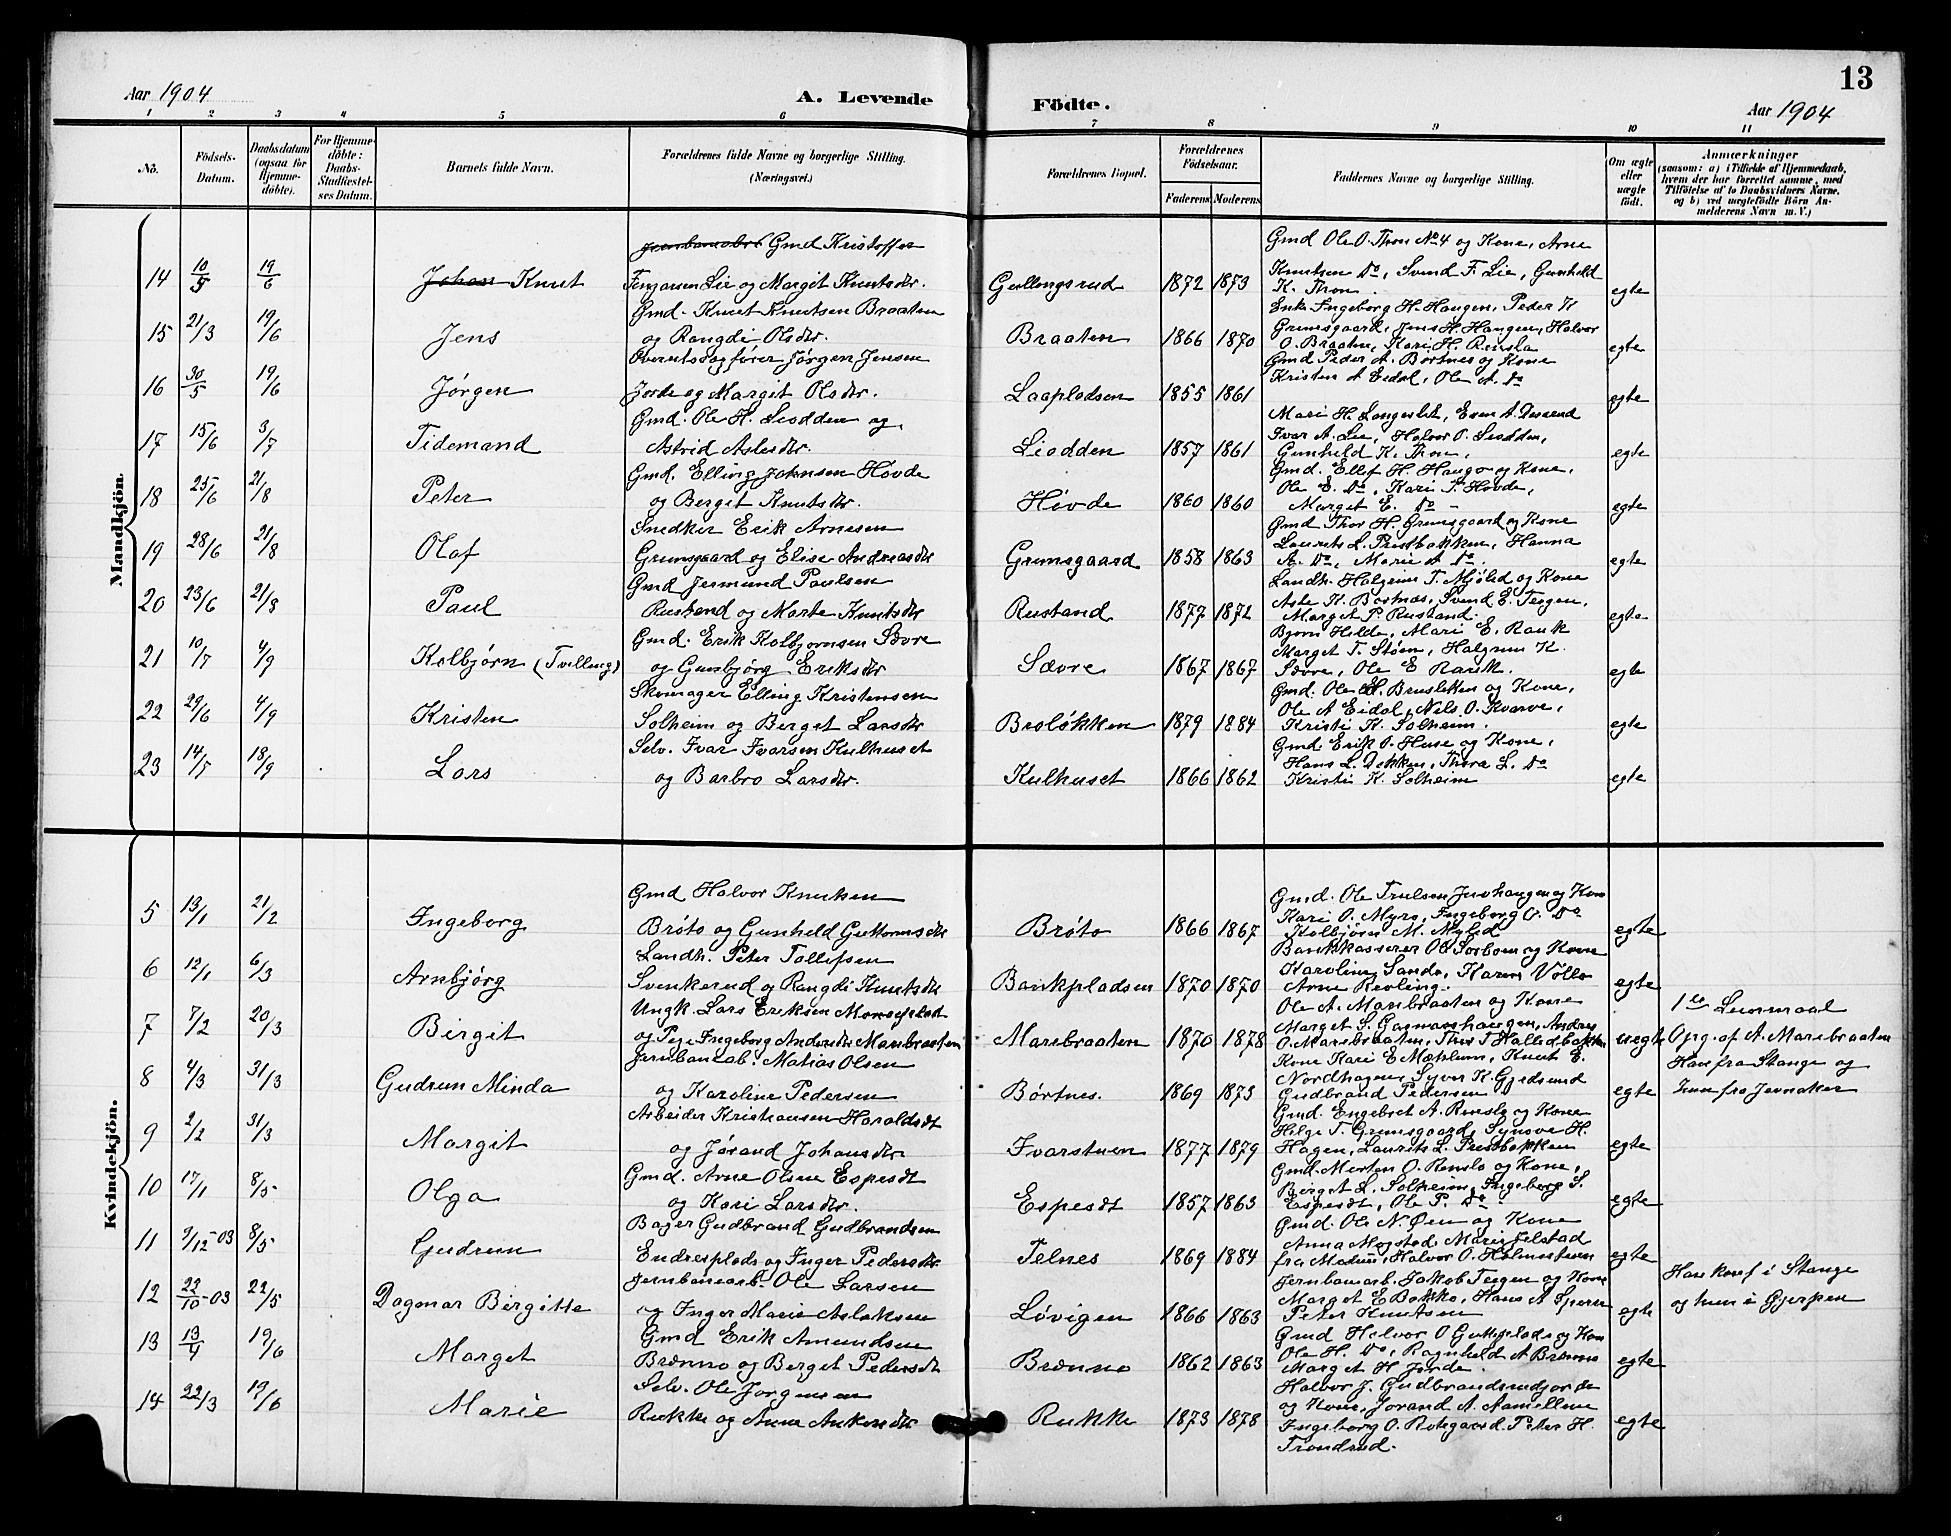 13
Aar 1904
A. Levende
Födte.
Aar 1904
1 2 3 4 5 6 7 8 9 10 11
No.
Födsels-
Datum.
Daabsdatum
(ogsaa for
Hjemme-
döbte).
For Hjemme-
döbte:
Daabs-
Stadfæstel-
ses Datum.
Barnets fulde Navn.
Forældrenes fulde Navne og borgerlige Stilling.
(Næringsvei.)
Forældrenes Bopæl.
Forældrenes
Födselsaar.
Faderens. Moderens.
Faddernes Navne og borgerlige Stilling.
Om ægte
eller
uægte
födt.
Anmærkninger
(saasom: a) i Tilfælde af Hjemmedaab,
hvem der har forrettet samme, med
Tilföielse af to Daabsvidners Navne,
og b) ved uægtefödte Börn An-
melderens Navn m. V.)
Mandkjön.
14 10/5 19/6 Johan Knut
Gmd Kristoffer
Lie og Margit Knutsdtr.
Gullingsrud 1872 1873
Gmd Ole O. Thon No 4 og Kone, Arne
Knutsen Do, Svend F. Lie, Gunhild
K. Thon.
egte
15 21/3 19/6 Jens
Gmd. Knut Knutsen Braaten
og Rangdi Olsdtr.
Braaten 1866 1870
Enke Ingeborg H. Haugen, Peder K
Grimsgaard, Jens H. Haugen, Halvor
O. Braaten, Kari H. Rensla
egte
16 30/5 19/6 Jørgen
Overretssagfører Jørgen Jensen
Jorde og Margit Olsdtr.
Laapladsen 1855 1861
Gmd Peder A. Børtnes og Kone
Kristen A Eidal, Ole A. Do
egte
17 15/6 3/7 Tidemand
Gmd. Ole H. Liodden og
Astrid Aslesdtr.
Liodden 1857 1861
Mari H. Langeslet, Even A.
Ivar A. Lie, Halvor O. Liodden,
Gunhild K. Thon,
egte
18 25/6 21/8 Peter
Gmd. Elling Johnsen Hovde
og Berget Knutsdtr.
Hovde 1860 1860
Gmd. Ellef H. Hauge og Kone,
Ole E. Do, Kari T. Hovde,
Marget E. Do
egte
19 28/6 21/8 Olaf
Snedker Erik Arnesen
Grimsgaard og Elise Andreasdtr
Grimsgaard 1858 1863
Gmd Thor H. Grimsgaard og Kone
Laurits L. Prestbakken, Hanna
A. Do, Marie A Do.
egte
20 23/6 21/8 Paul
Gmd Jermund Paulsen
Rustand og Marte Knutsdtr
Rustand 1877 1872
Landh. Halgrim T. Mjølid og Kone
Asle K. Børtnes, Svend E. Teigen,
Marget P. Rustand.
egte
21 10/7 4/9 Kolbjørn (Tvilling)
Gmd. Erik Kolbjørnsen Sævre
og Gunbjørg Eriksdtr
Sævre 1867 1867
Bjørn Hilde, Mari E. Rauk
Marget T. Støen, Halgrim K.
Sævre, Ole E Rauk.
egte
22 29/6 4/9 Kristen
Skomager Elling Kristensen
Solheim og Berget Larsdtr
Broløkken 1879 1884
Gmd. Ole H. Brusletten og Kone,
Ole A Eidal, Nils O. Kvarve,
Kristi K. Solheim.
egte
23 14/5 18/9 Lars
Selv. Ivar Ivarsen Kulhuset
og Barbro Larsdtr.
Kulhuset 1866 1862
Gmd. Erik O. Huse og Kone,
Hans L. Dokken, Thora L. Do
Kristi K. Solheim
egte
Kvindekjön.
5 13/1 21/2 Ingeborg
Gmd Halvor Knutsen
Brøto og Gunhild Guttormsdtr
Brøto 1866 1867
Gmd. Ole Trulsen Juvhaugen og Kone
Kari O. Myro, Ingeborg O. Do
Kolbjørn M. Mylid
egte
6 12/1 6/3 Arnbjørg
Landh. Peter Tollefsen
Svenkerud og Rangdi Knutsdtr
Bankpladsen 1870 1870
Bankkasserer O. Sorbøen og Kone
Karoline Sando, Karen Vollo
Arne Revling.
egte
7 7/2 20/3 Birgit
Ungk. Lars Eriksen
og Pige Ingeborg Andersdtr Marebraaten
Marebraaten 1870 1878
Ole A. Marebraaten og Kone
Marget S. Garnaashaugen, Andres
O. Marebraaten, Thor T Hallidbakken
uegte
1ste Leiermaal
Opg. af A. Marebraaten
8 4/3 31/3 Gudrun Minda
Jernbanearb. Matias Olsen
og Karoline Pedersen
Børtnes. 1869 1873
Kone Kari E Mæhlum, Knut E.
Nordhagen, Syver K. Gjedsund
Gudbrand Pedersen
egte
Han fra Stange og
hun fra Jevnaker
9 2/2 31/3 Margit
Arbeider Kristiansen Haraldsdt
og Jørand Johansdtr
Ivarstuen 1877 1879
Gmd. Engebret A. Renslo og Kone
Helge T. Grimsgaard, Synøve H.
Hagen, Laurits L. Prestbakken
egte
10 17/1 8/5 Olga
Gmd. Arne Olsen Espesdt
og Kari Larsdtr.
Espesdt 1857 1863
Gmd. Morten O. Renslo og Kone,
Birget L. Solheim, Ingeborg S.
Espesdt, Ole P. Do
egte
11 9/12-03 8/5 Gudrun
Bager Gudbrand Gudbrandsen
Endresplads og Inger Pedersdtr
Felnes 1869 1884
Gmd. Ole N. Øen og Kone
Anna Mogstad, Marie Felstad
fra Modum, Halvor O. Holmestuen
egte
12 22/10-03 22/5 Dagmar Birgitte
Jernbanearb. Ole Larsen
og Inger Marie Aslaksen
Løvigen 1866 1863
Jernbanearb. Jakob Teigen og Kone
Marget E Bakko, Hans A Speren
Peter Knutsen
egte
Han konf i Stange
og hun i Gjerpen
13 13/4 19/6 Marget
Gmd Erik Amundsen
Brænno og Berget Pedersdt
Brænno 1862 1863
Gmd Halvor O Guttplads og Kone
Ole H. Do, Ragnhild A Brænno
Marget H Jorde.
egte
14 22/3 19/6 Marie
Selv. Ole Jørgensen
Rukke og Anne Ankersdtr
Rukke 1873 1878
Halvor J. Gudbrandsrudjorde
og Kone, Jorand A.
Ingeborg O. Rotegaard, Peter H.
Trondrud.
egte